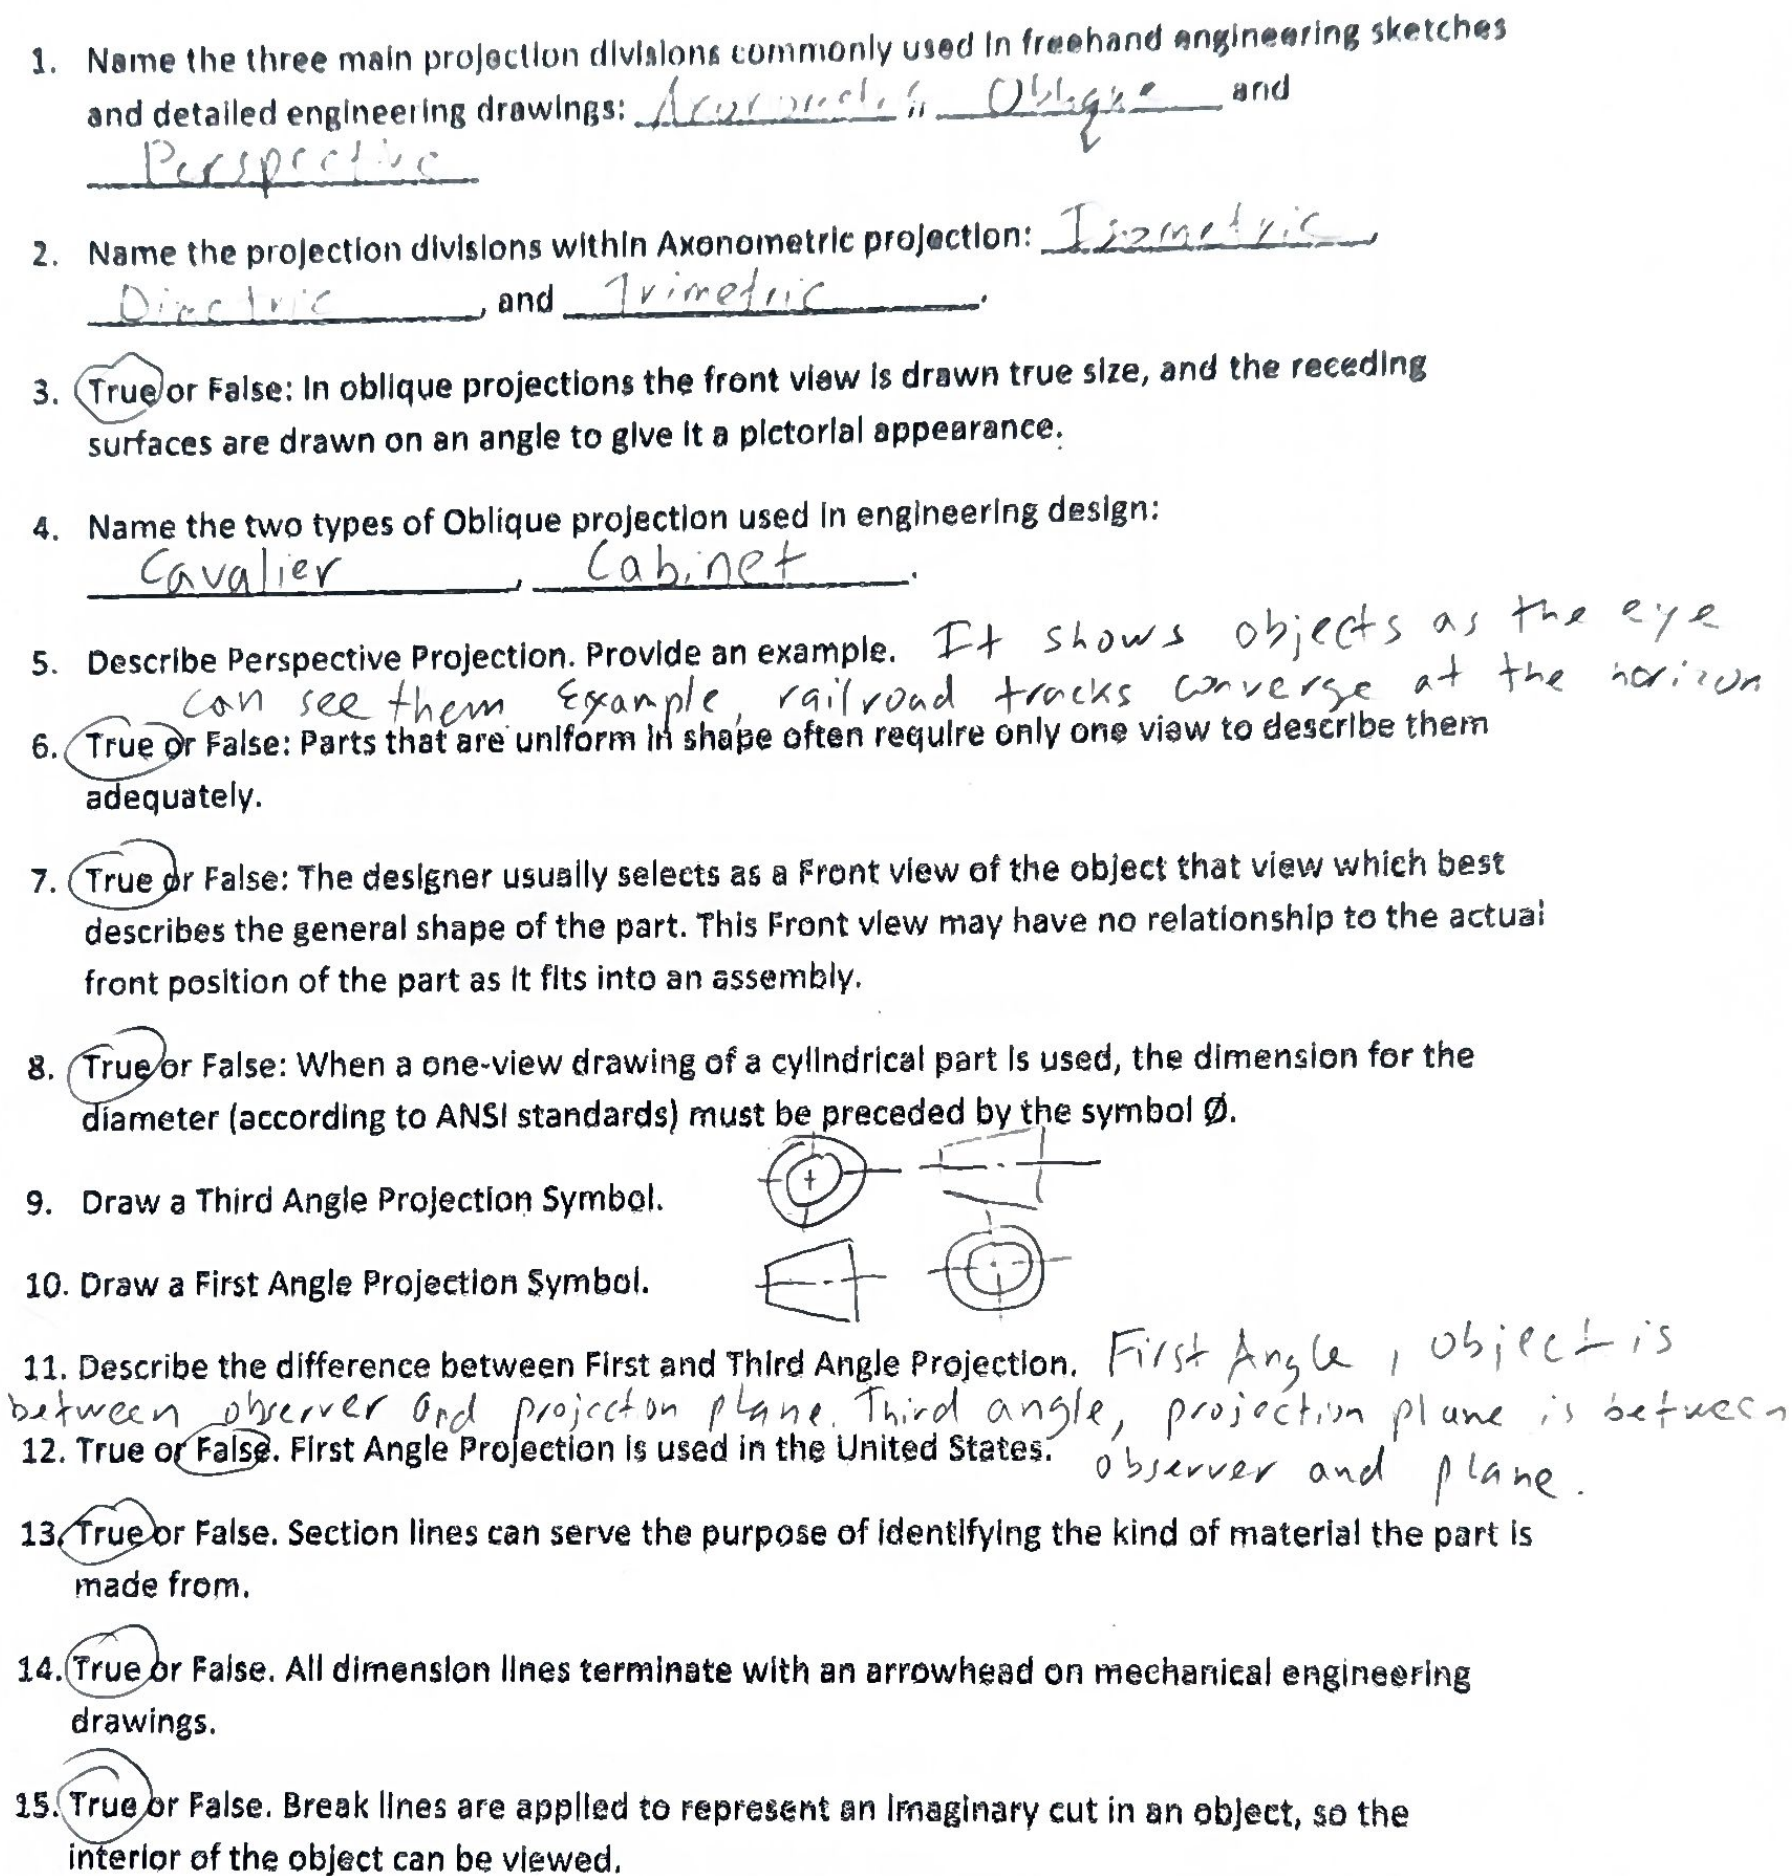 1. Name the three main projection divisions commonly used in freehand engineering sketches
and detailed engineering drawings: Axonometric, Oblique and
Perspective
2. Name the projection divisions within Axonometric projection: Isometric,
Dimetric, and Trimetric.
3. True or False: In oblique projections the front view is drawn true size, and the receding
surfaces are drawn on an angle to give it a pictorial appearance.
4. Name the two types of Oblique projection used in engineering design:
Cavalier, Cabinet.
5. Describe Perspective Projection. Provide an example. It shows objects as the eye
can see them Example, railroad tracks converge at the horizon
6. True or False: Parts that are uniform in shape often require only one view to describe them
adequately.
7. True or False: The designer usually selects as a Front view of the object that view which best
describes the general shape of the part. This Front view may have no relationship to the actual
front position of the part as it fits into an assembly.
8. True or False: When a one-view drawing of a cylindrical part is used, the dimension for the
diameter (according to ANSI standards) must be preceded by the symbol Ø.
9. Draw a Third Angle Projection Symbol.
10. Draw a First Angle Projection Symbol.
11. Describe the difference between First and Third Angle Projection. First Angle, object is
between observer and projection plane. Third angle, projection plane is between
observer and plane.
12. True or False. First Angle Projection is used in the United States.
13. True or False. Section lines can serve the purpose of identifying the kind of material the part is
made from.
14. True or False. All dimension lines terminate with an arrowhead on mechanical engineering
drawings.
15. True or False. Break lines are applied to represent an imaginary cut in an object, so the
interior of the object can be viewed.